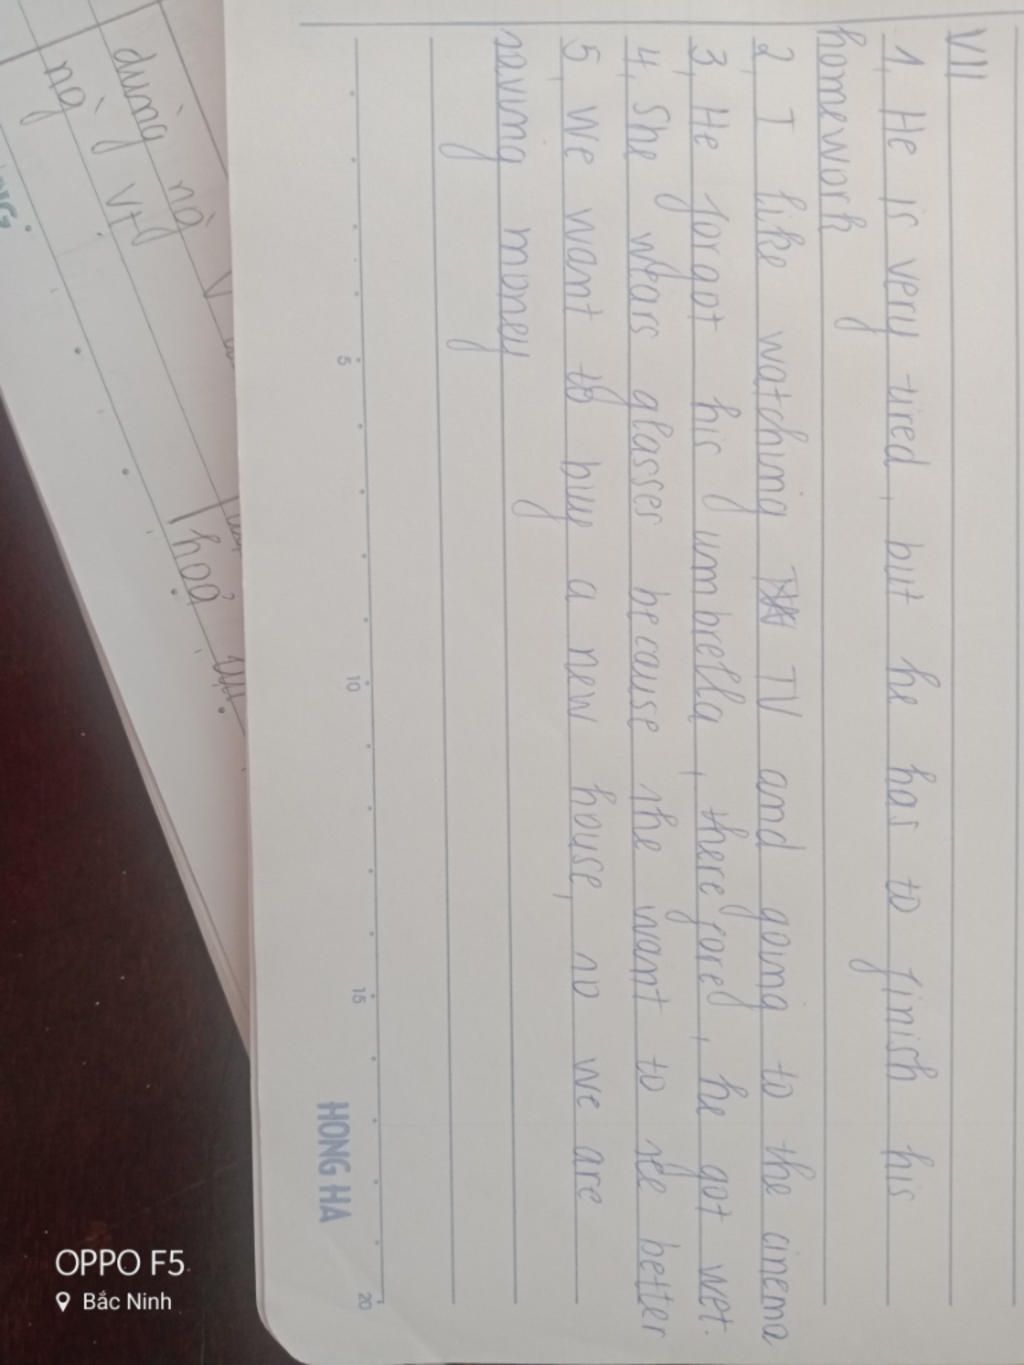 VII
1, He is very tired, but he has to finish his
homework
2, I like watching TV and going to the cinema
3, He forgot his umbrella, therefore, he got wet.
4, She wears glasses because she want to see better
5, We want to buy a new house, so we are
saving money
5
10
15
20
HONG HA
dùng
ng
hoá
OPPO F5
Bắc Ninh